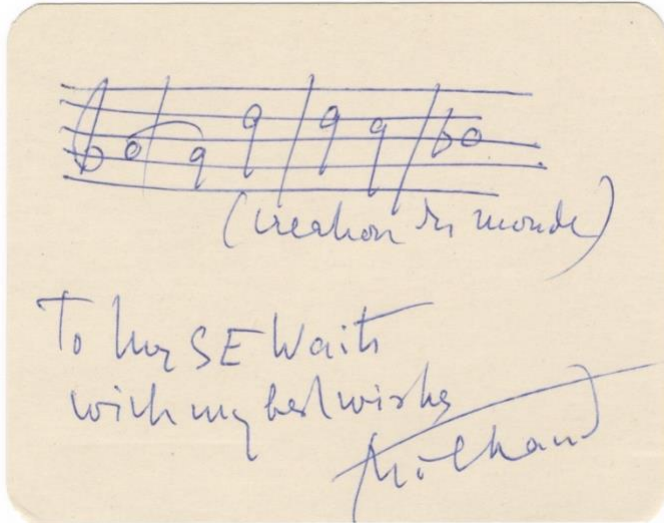 (Creation du monde)
To Mrs SE Waits
with my best wishes
Milhaud